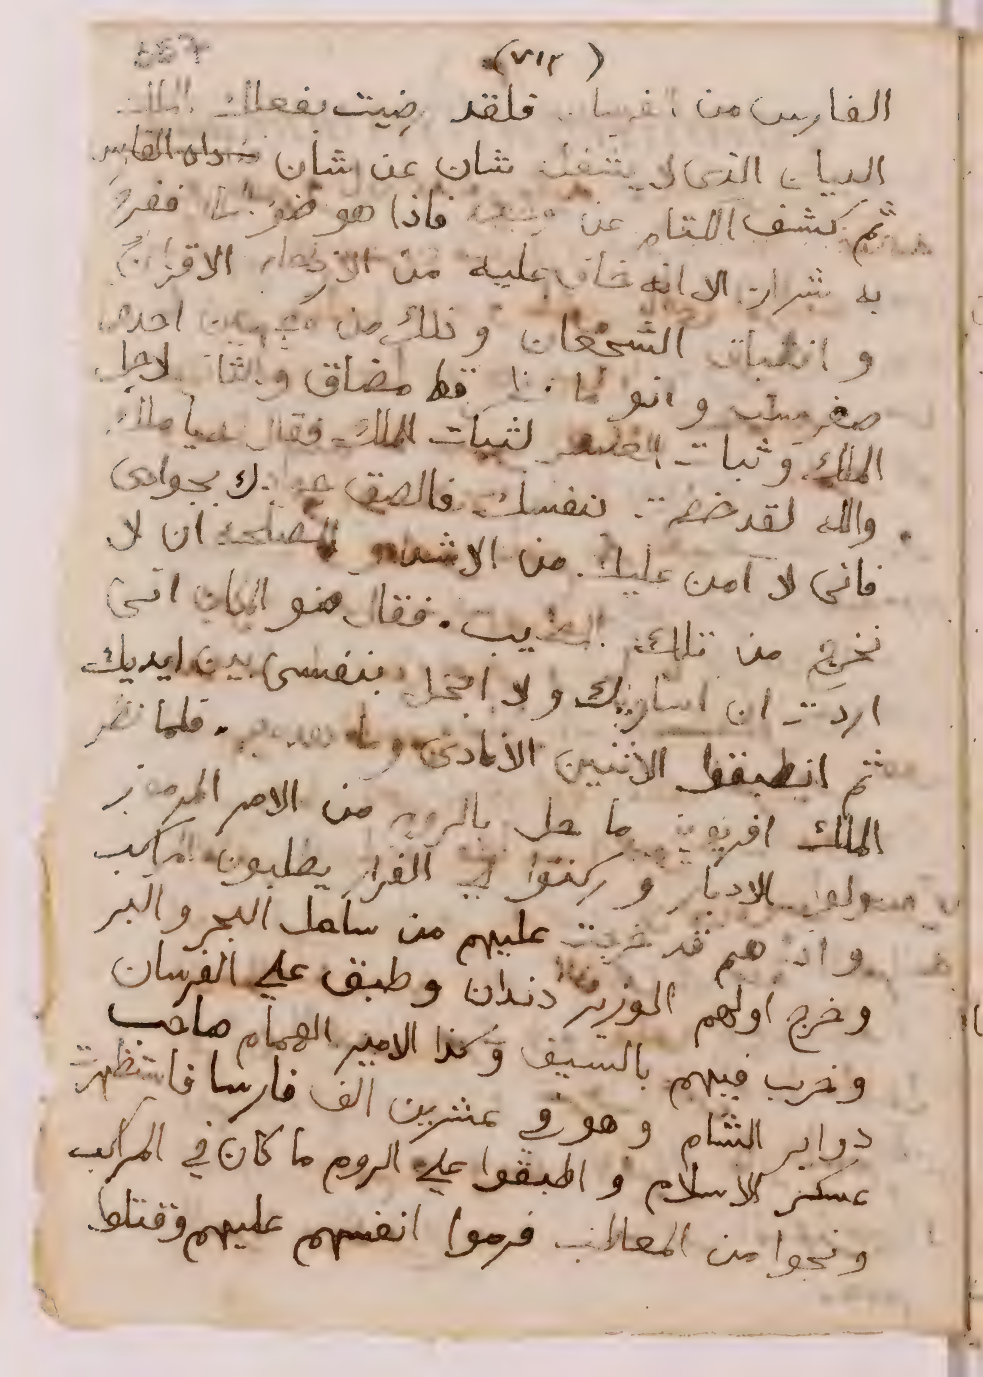 (٧١٢)
الفارس من الفرسان فلقد رضيت بفعلك الملك
الديان الذى لا يشغله شان عن شان
ثم كشف اللثام عن وجهه فاذا هو ضو ففرح
به شركان الا انه خاف عليه من الازدحام الاقران
و انطباق الشجعان و ذلك من وجهين احدهم
صغر سنه و انو قط مضاق والثانى لاجل
الملك و ثبات لثبات الملك فقال يا ملك
والله لقد خطرت نفسك فالصق جوادك بجوادى
فانى لا امن عليك من الاشد المصلحه ان لا
نخرج من تلك . فقال ضو المكان انى
اردت ان اساويك ولا ابخل بنفسى بين ايديك
ثم انطبقوا الاثنين الأنادى . فلما نظر
الملك افريدون ما حل بالروم من الامر
ولوا الادبار و ركنوا الى الفرار يطلبون المراكب
و اذا هم قد خرجت عليهم من ساحل البحر والبر
وخرج اولهم الوزير دندان وطبق على الفرسان
و ضرب فيهم بالسيف و كذا الامير الهمام صاحب
دواير الشام و هو فى عشرين الف فارسا فاستظهرت
عسكر الاسلام و اطبقوا على الروم ما كان في المراكب
ونجوا من المعاطب فرموا انفسهم عليهم وقتلوا